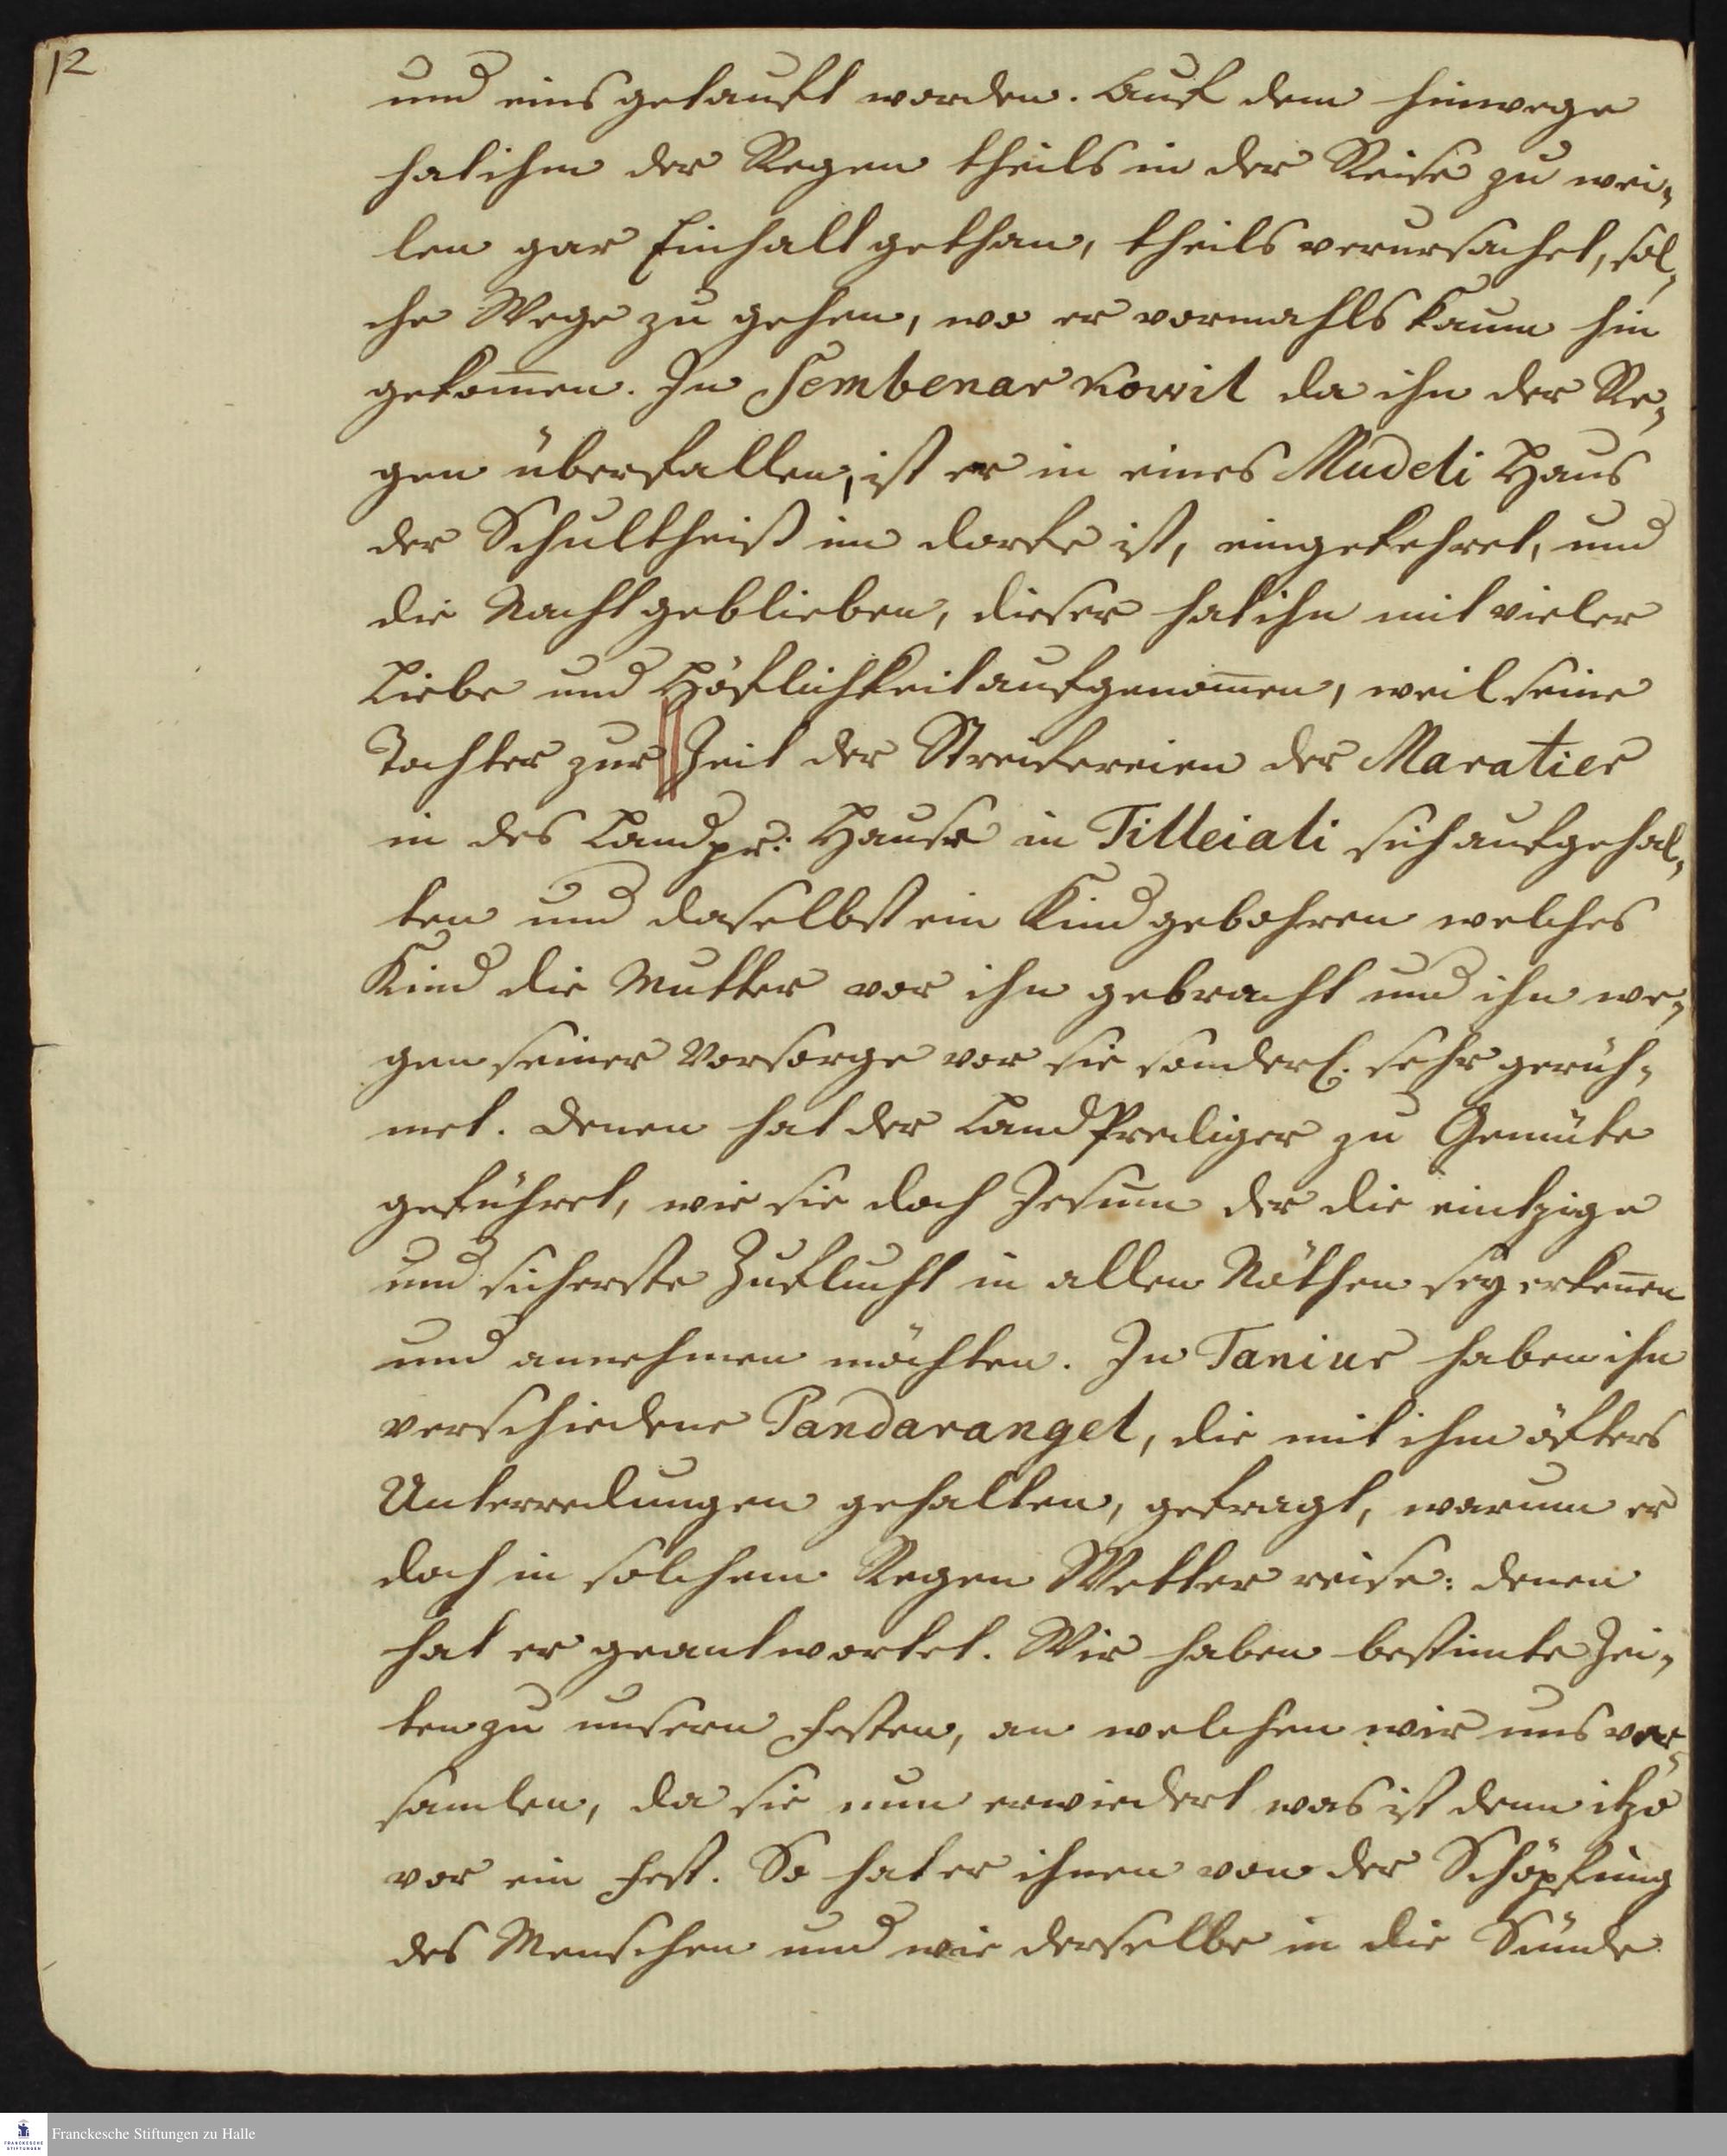 12
und eins getauft worden. Auf dem hinwege
hat ihm der Regen theils in der Reise zu wei-
len gar Einhalt gethan, theils verursachet, sol-
che Wege zu gehen, wo er vormahls kaum hin
gekom̅en. In Sembenar kowil da ihn der Re-
gen überfallen, ist er in eines Mudeli Haus
der Schultheiß im dorfe ist, eingekehret, und
die Nacht geblieben, dieser hat ihn mit vieler
Liebe und Höflichkeit aufgenom̅en, weil seine
Tochter zur Zeit der Streifereien der Maratier
in des Landpr: Hause in Tilleiali sich aufgehal-
ten und daselbst ein Kind gebohren welches
Kind die Mutter vor ihn gebracht und ihn we-
gen seiner Vorsorge vor sie sonderl. sehr gerüh-
met. denen hat der Land Prediger zu Gemüte
geführet, wie sie doch Jesum der die eintzige
und sicherste Zuflucht in allen Nöthen sey erken̅en
und annehmen möchten. In Taniur haben ihn
verschiedene Pandarangel, die mit ihm öfters
Unterredungen gehalten, gefragt, warum er
doch in solchem Regen Wetter reise: denen
hat er geantwortet. Wir haben bestimte Zei-
ten zu unsern Festen, an welchen wir uns ver-
samlen, da sie nun erwiedert was ist denn itzo
vor ein Fest. So hat er ihnen von der Schöpfung
des Menschen und wie derselbe in die Sünde
Franckesche Stiftungen zu Halle